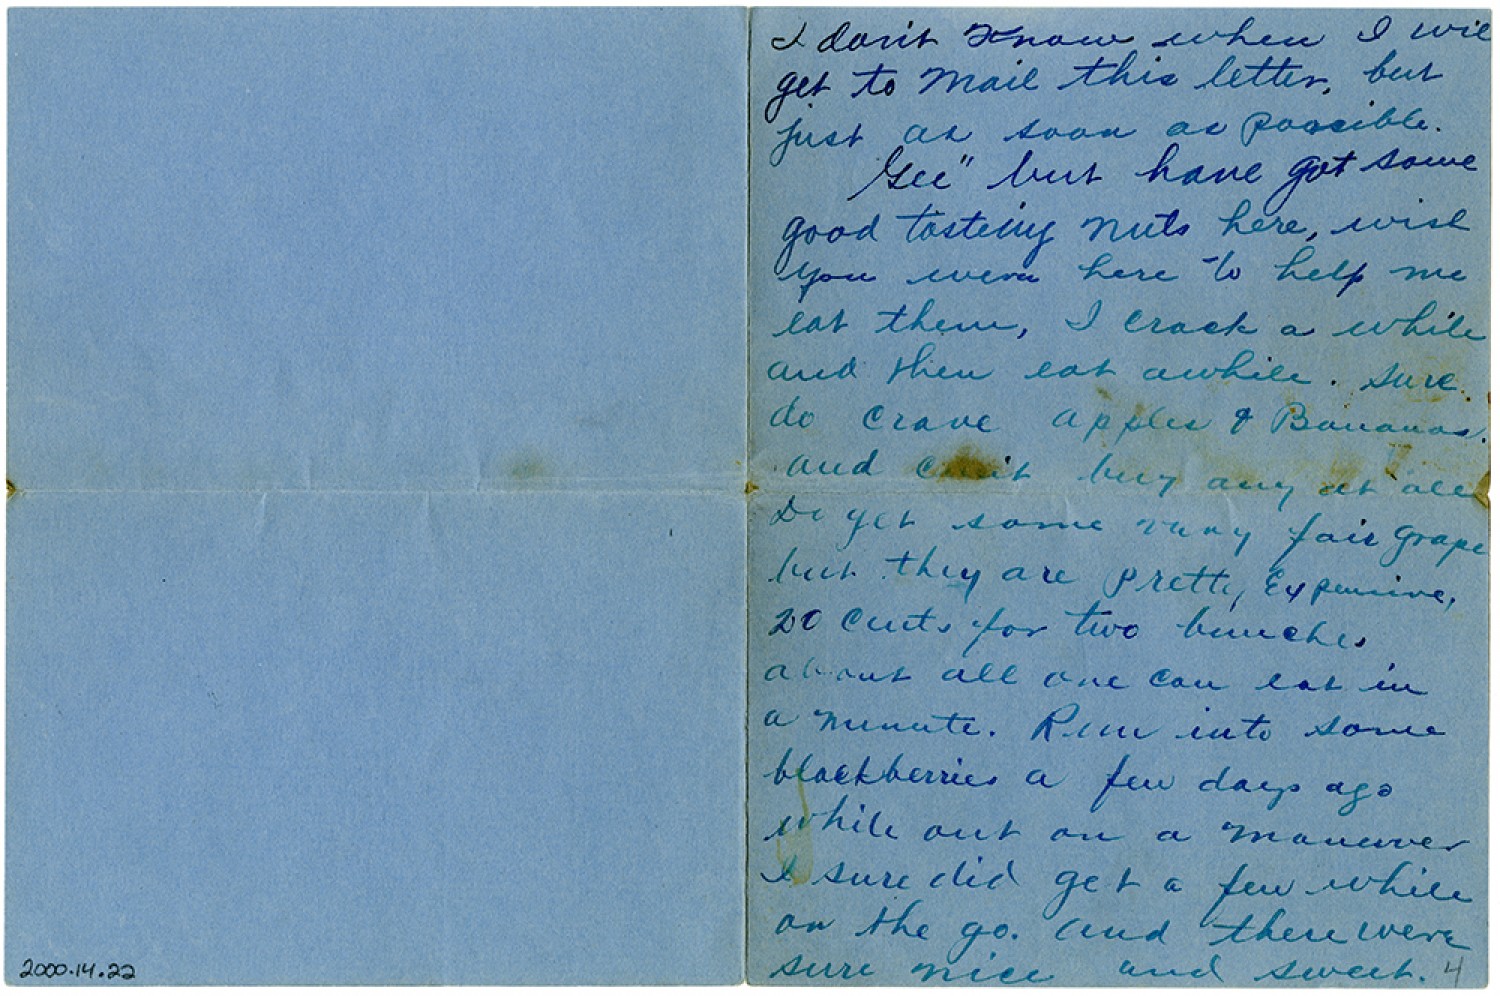 I don't know when I will
get to mail this letter, but
just as soon as possible.
"Gee" but have got some
good tasteing nuts here, wish
you were here to help me
eat them, I crack a while
and then eat awhile. sure
do crave apples & Bananas.
and can't buy any at all
Do get some very fair grape
but they are pretty Expensive,
20 cents for two bunches
about all one can eat in
a minute. Run into some
blackberries a few days ago
while out on a maneuver
I sure did get a few while
on the go. and there were
sure nice and sweet. 4
2000.14.22